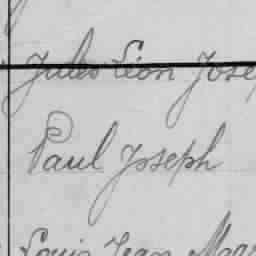 Jules Léon Jose
Paul Joseph
Louis Jean Mar